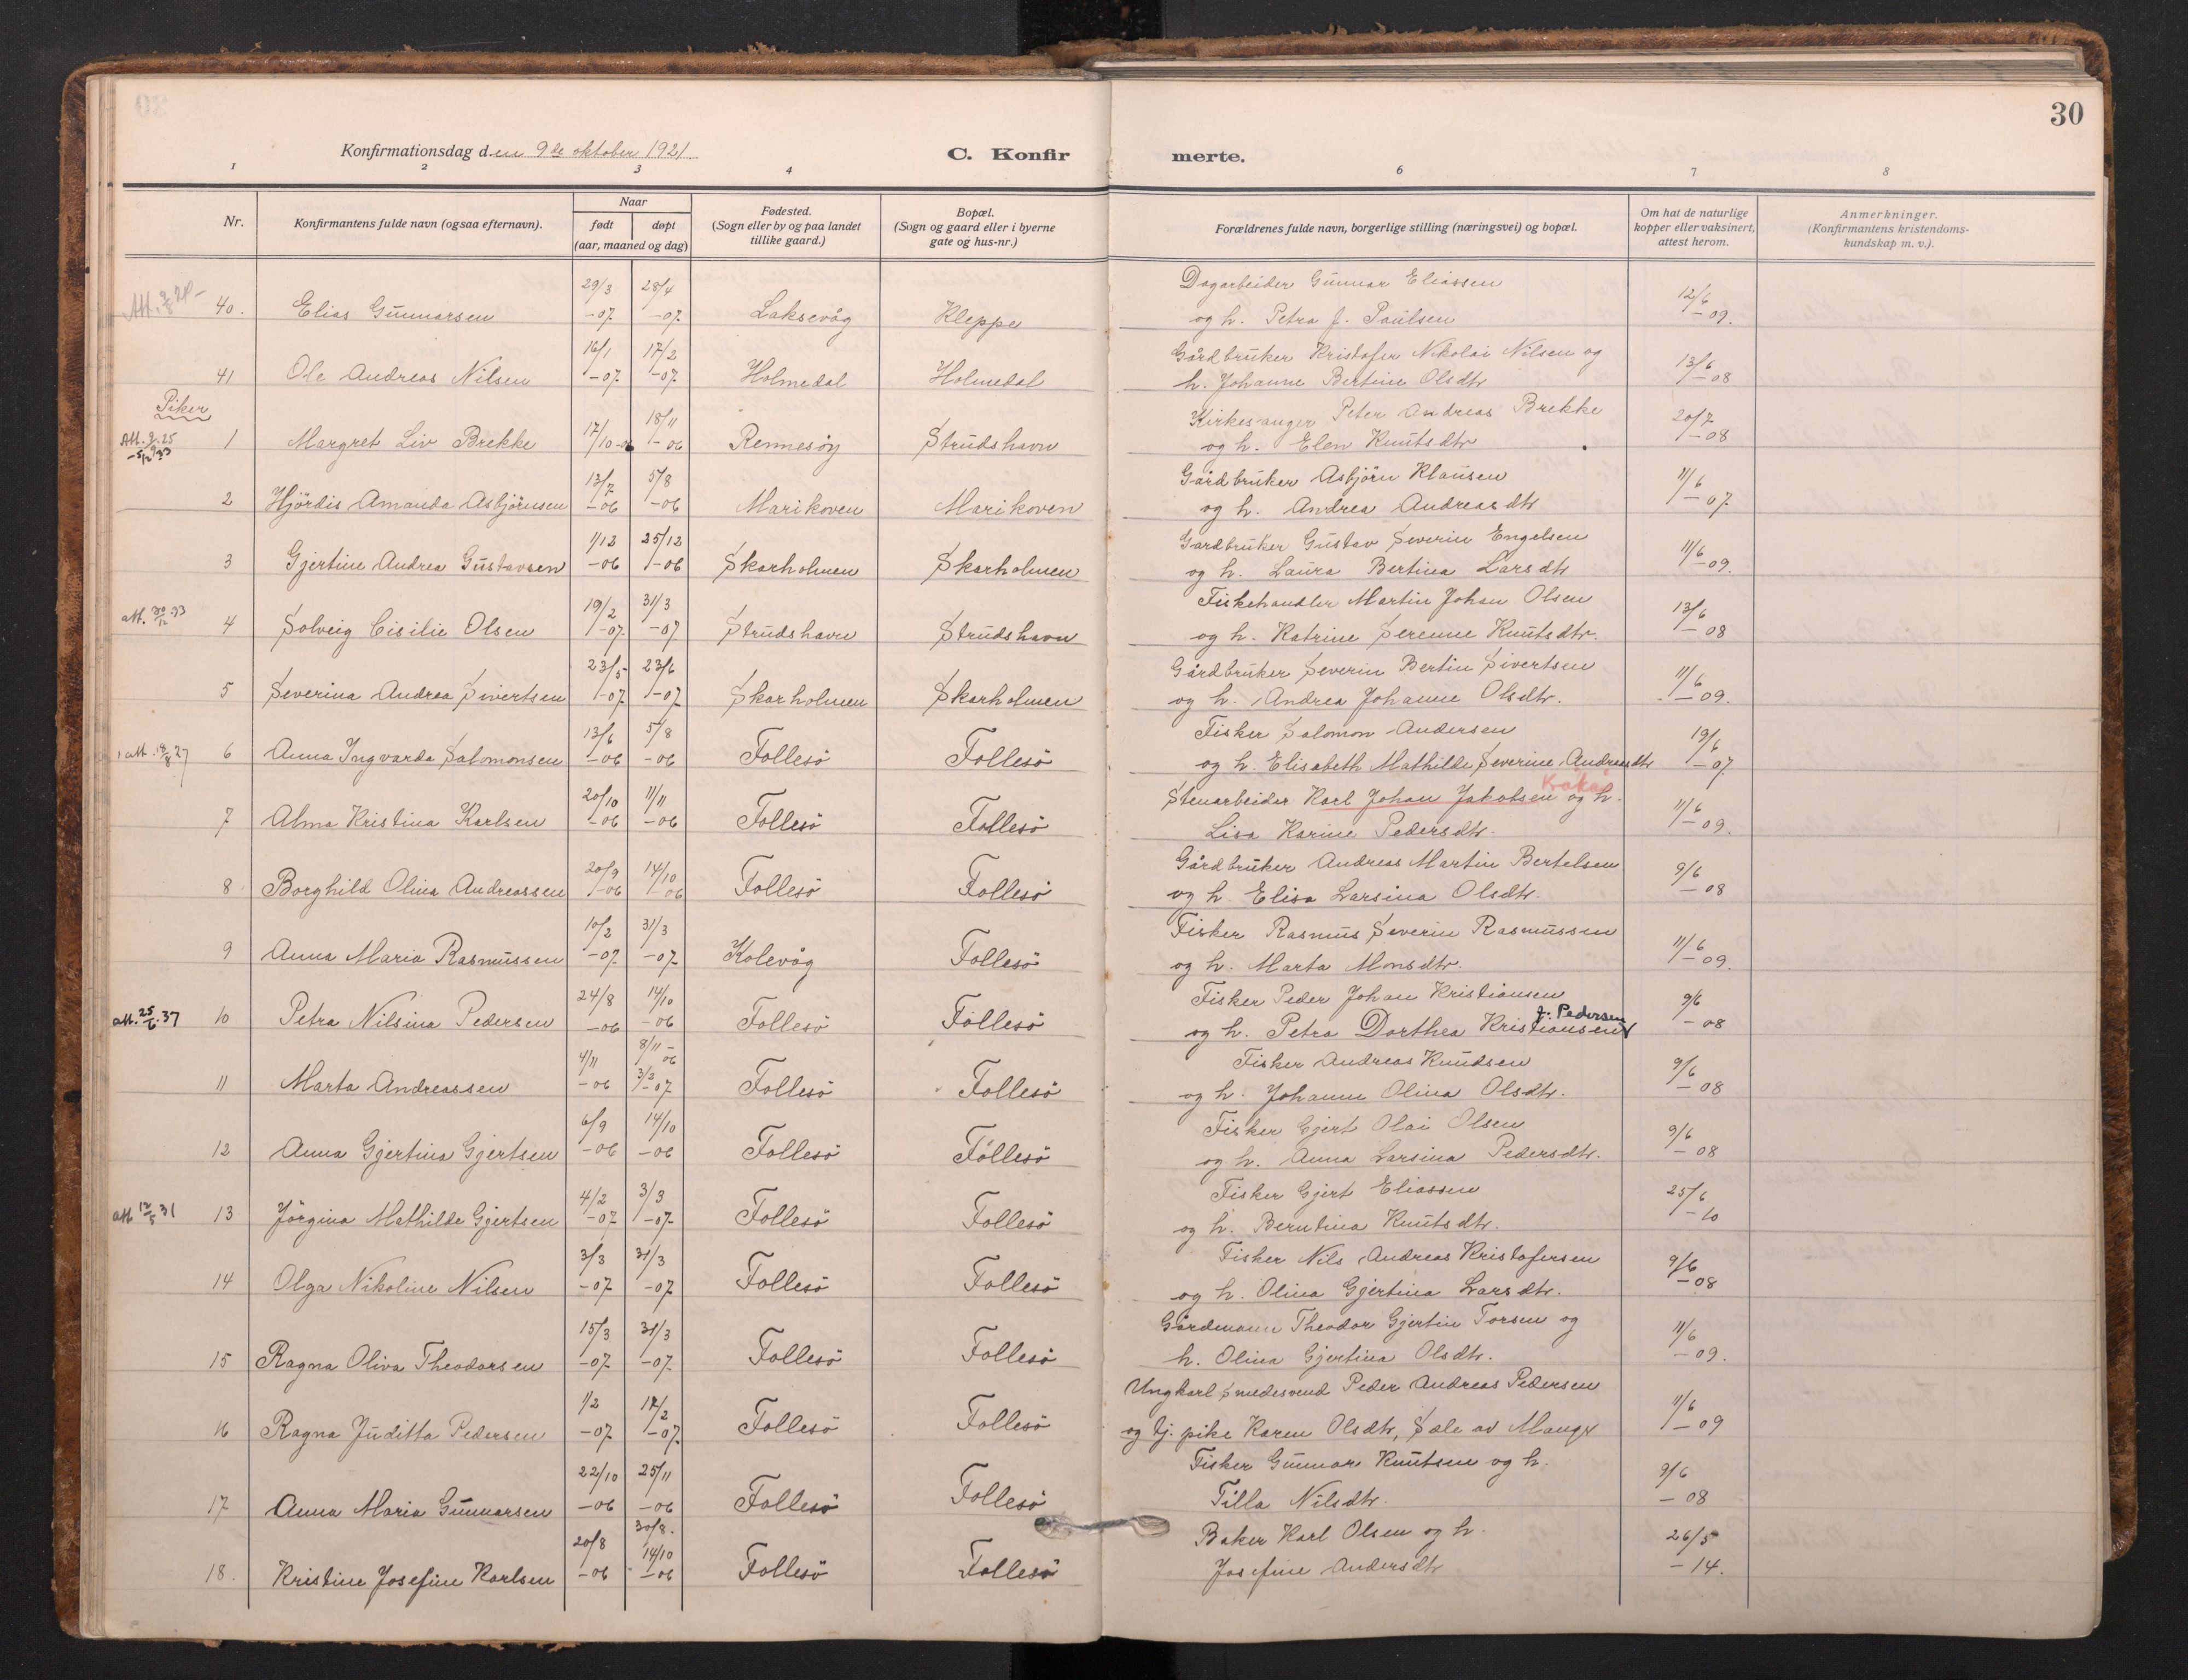 30
Konfirmationsdag den 9de oktober 1921.
C. Konfirmerte.
1 2 3 4 6 7 8
Nr.
Konfirmantens fulde navn (ogsaa efternavn).
Naar
født døpt
(aar, maaned og dag)
Fødested.
(Sogn eller by og paa landet
tillike gaard.)
Bopæl.
(Sogn og gaard eller i byerne
gate og hus-nr.)
Forældrenes fulde navn, borgerlige stilling (næringsvei) og bopæl.
Om hat de naturlige
kopper eller vaksinert,
attest herom.
Anmerkninger.
(Konfirmantens kristendoms-
kundskap m. v.).
29/3 28/4 Dagarbeider Gunnar Eliassen 12/6
40. Elias Gunnarsen -07 -07 Laksevåg Kleppe og h. Petra J. Paulsen -09.
16/1 17/2 Gårdbruker Kristofer Nikolai Nilsen og 13/6
41 Ole Andreas Nilsen -07 -07 Holmedal Holmedal h. Johanne Bertine Olsdtr -08
Piker
17/10 18/11 Kirkesanger Peter Andreas Brekke 20/7
Att. 9.25 1 Margret Liv Brekke -06 -06 Rennesøy Strudshavn og h. Elen Knutsdtr -08
13/7 5/8 Gårdbruker Asbjörn Klausen 11/6
2 Hjördis Amanda Asbjörnsen -06 -06 Marikoven Marikoven og h. Andrea Andreasdtr -07
1/12 25/12 Gardbruker Gustav Severin Engelsen 11/6
3 Gjertine Andrea Gustavsen -06 -06 Skarholmen Skarholmen og h. Laura Bertina Larsdtr -09.
19/2 31/3 Fiskehandler Martin Johan Olsen 13/6
att. 30/12 33 4 Solveig Cisilie Olsen -07 -07 Strudshavn Strudshavn og h. Katrine Serenne Knutsdtr. -08
23/5 23/6 Gårdbruker Severin Bertin Sivertsen 11/6
5 Severina Andrea Sivertsen -07 -07 Skarholmen Skarholmen og h. Andrea Johanne Olsdtr. -09.
13/6 5/8 Fisker Salomon Andersen 19/6
att. 18/8 27 6 Anna Ingvarda Salomonsen -06 -06 Follesö Follesö og h. Elisabeth Mathilde Severine Andreasdtr -07
20/10 11/11 Stenarbeider Karl Johan Jakobsen og h. 11/6
7 Alma Kristina Karlsen -06 -06 Follesö Follesö Lisa Karine Pedersdtr. -09.
20/9 14/10 Gårdbruker Andreas Martin Bertelsen 9/6
8 Borghild Olina Andreassen -06 -06 Follesö Follesö og h. Elisa Larsina Olsdtr. -08
10/2 31/3 Fisker Rasmus Severin Rasmussen 11/6
9 Anna Maria Rasmussen -07 -07 Kolevåg Follesö og h. Marta Monsdtr. -09.
24/8 14/10 Fisker Peder Johan Kristiansen 9/6
J. Pedersen
att. 25/6 37 10 Petra Nilsina Pedersen -06 -06 Follesö Follesö og h. Petra Dorthea Kristiansen -08
4/11 8/11 -06 Fisker Andreas Knudsen 9/6
11 Marta Andreassen -06 3/3 -07 Follesö Follesö og h. Johanne Olina Olsdtr. -08
6/9 14/10 Fisker Gjert Olai Olsen 9/6
12 Anna Gjertina Gjertsen -06 -06 Follesö Follesö og h. Anna Larsina Pedersdtr. -08
4/2 3/3 Fisker Gjert Eliassen 25/6
att 12/5 31 13 Jörgina Mathilde Gjertsen -07 -07 Follesö Follesö og h. Berntina Knutsdtr. -10
3/3 31/3 Fisker Nils Andreas Kristofersen 9/6
14 Olga Nikoline Nilsen -07 -07 Follesö Follesö og h. Olina Gjertina Larsdtr. -08
15/3 31/3 Gårdmann Theodor Gjertin Torsen og 11/6
15 Ragna Oliva Theodorsen -07 -07 Follesö Follesö h. Olina Gjertina Olsdtr. -09.
1/2 17/2 Ungkarl smedesvend Peder Andreas Pedersen 11/6
16 Ragna Juditta Pedersen -07 -07 Follesö Follesö og tj. pike Karen Olsdtr, Sæle av Manger -09
22/10 25/11 Fisker Gunnar Knutsen og h. 9/6
17 Anna Maria Gunnarsen -06 -06 Follesö Follesö Tilla Nilsdtr. -08
20/8 30/8. Baker Karl Olsen og h. 26/5
18. Kristine Josefine Karlsen -06 14/10 -06 Follesö Follesö Josefine Andersdtr -14.